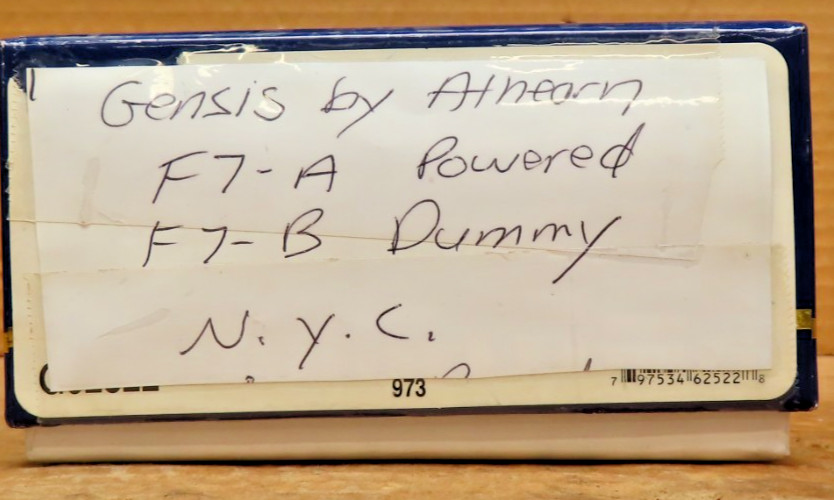 Gensis by Athearn
F7-A Powered
F7-B Dummy
N.Y.C.
973
7 97534 62522 8